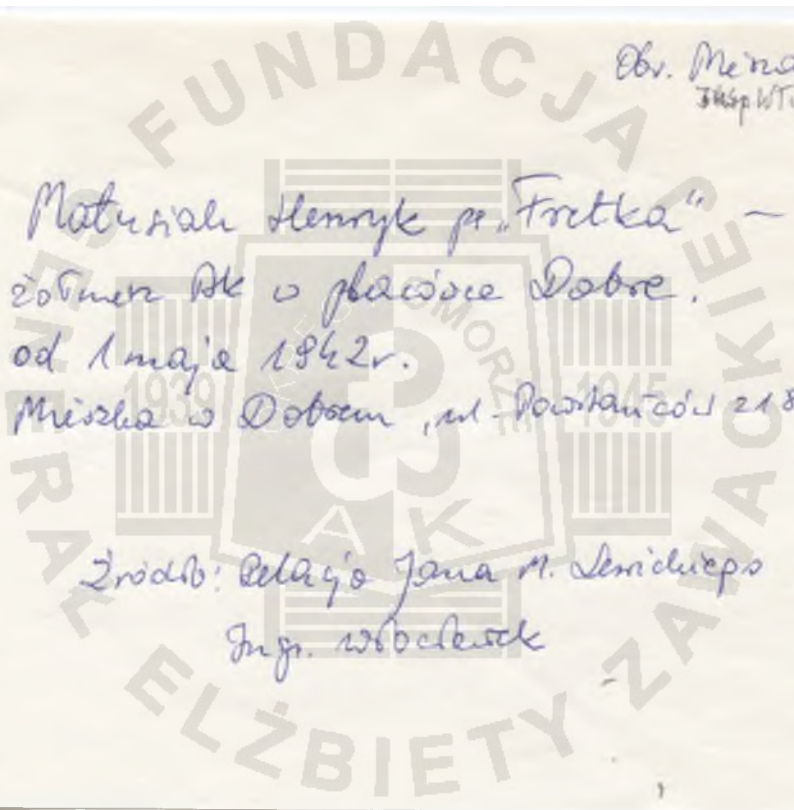 Obr. 
Matusiak Henryk ps. „Fretka" –
żołnierz AK w placówce Dobre.
od 1 maja 1942r.
Mieszka w Dobrem, ul. Powstańców 218
Źródło: Relacja Jana M. Lewickiego
Insp. Włocławek
FUNDACJA GENERAŁ ELŻBIETY ZAWACKIEJ
POMORZE
1939 1945
AK